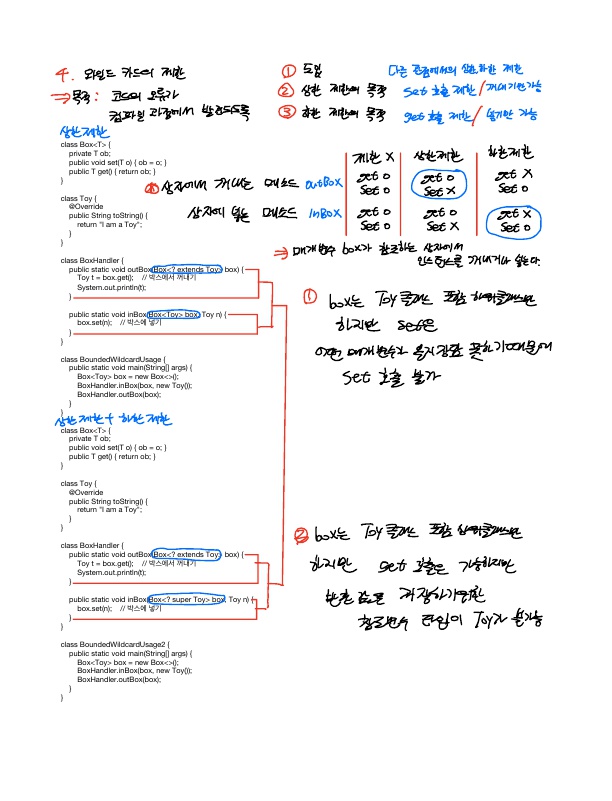 4. 와일드 카드의 제한
⇒ 목적 : 코드의 오류가
컴파일 과정에서 발견되도록
① 도입 다른 관점에서의 상한 하한 제한
② 상한 제한의 목적 set 호출 제한 / 꺼내기만 가능
③ 하한 제한의 목적 get 호출 제한 / 넣기만 가능
상한 제한
class Box<T> {
private T ob;
public void set(T o) { ob = o; }
public T get() { return ob; }
}
class Toy {
@Override
public String toString() {
return "I am a Toy";
}
}
제한 X 상한제한 하한제한
상자에서 꺼내는 메소드 outBox get O set O get O set X get X set O
상자에 넣는 메소드 inBox get O set O get O set X get X set O
⇒ 매개변수 box가 참조하는 상자에서
인스턴스를 꺼내거나 넣는다.
class BoxHandler {
public static void outBox(Box<? extends Toy> box) {
Toy t = box.get(); // 박스에서 꺼내기
System.out.println(t);
}
public static void inBox(Box<Toy> box, Toy n) {
box.set(n); // 박스에 넣기
}
}
① box는 Toy 클래스 포함 하위클래스만
하지만 set은
어떤 매개변수가 올지 감당 못하기 때문에
set 호출 불가
class BoundedWildcardUsage {
public static void main(String[] args) {
Box<Toy> box = new Box<>();
BoxHandler.inBox(box, new Toy());
BoxHandler.outBox(box);
}
}
상한 제한 + 하한 제한
class Box<T> {
private T ob;
public void set(T o) { ob = o; }
public T get() { return ob; }
}
class Toy {
@Override
public String toString() {
return "I am a Toy";
}
}
class BoxHandler {
public static void outBox(Box<? extends Toy> box) {
Toy t = box.get(); // 박스에서 꺼내기
System.out.println(t);
}
public static void inBox(Box<? super Toy> box, Toy n) {
box.set(n); // 박스에 넣기
}
}
② box는 Toy 클래스 포함 상위클래스만
하지만 get 호출은 가능하지만
반환 값을 저장하기 위한
참조변수 타입이 Toy가 불가능
class BoundedWildcardUsage2 {
public static void main(String[] args) {
Box<Toy> box = new Box<>();
BoxHandler.inBox(box, new Toy());
BoxHandler.outBox(box);
}
}